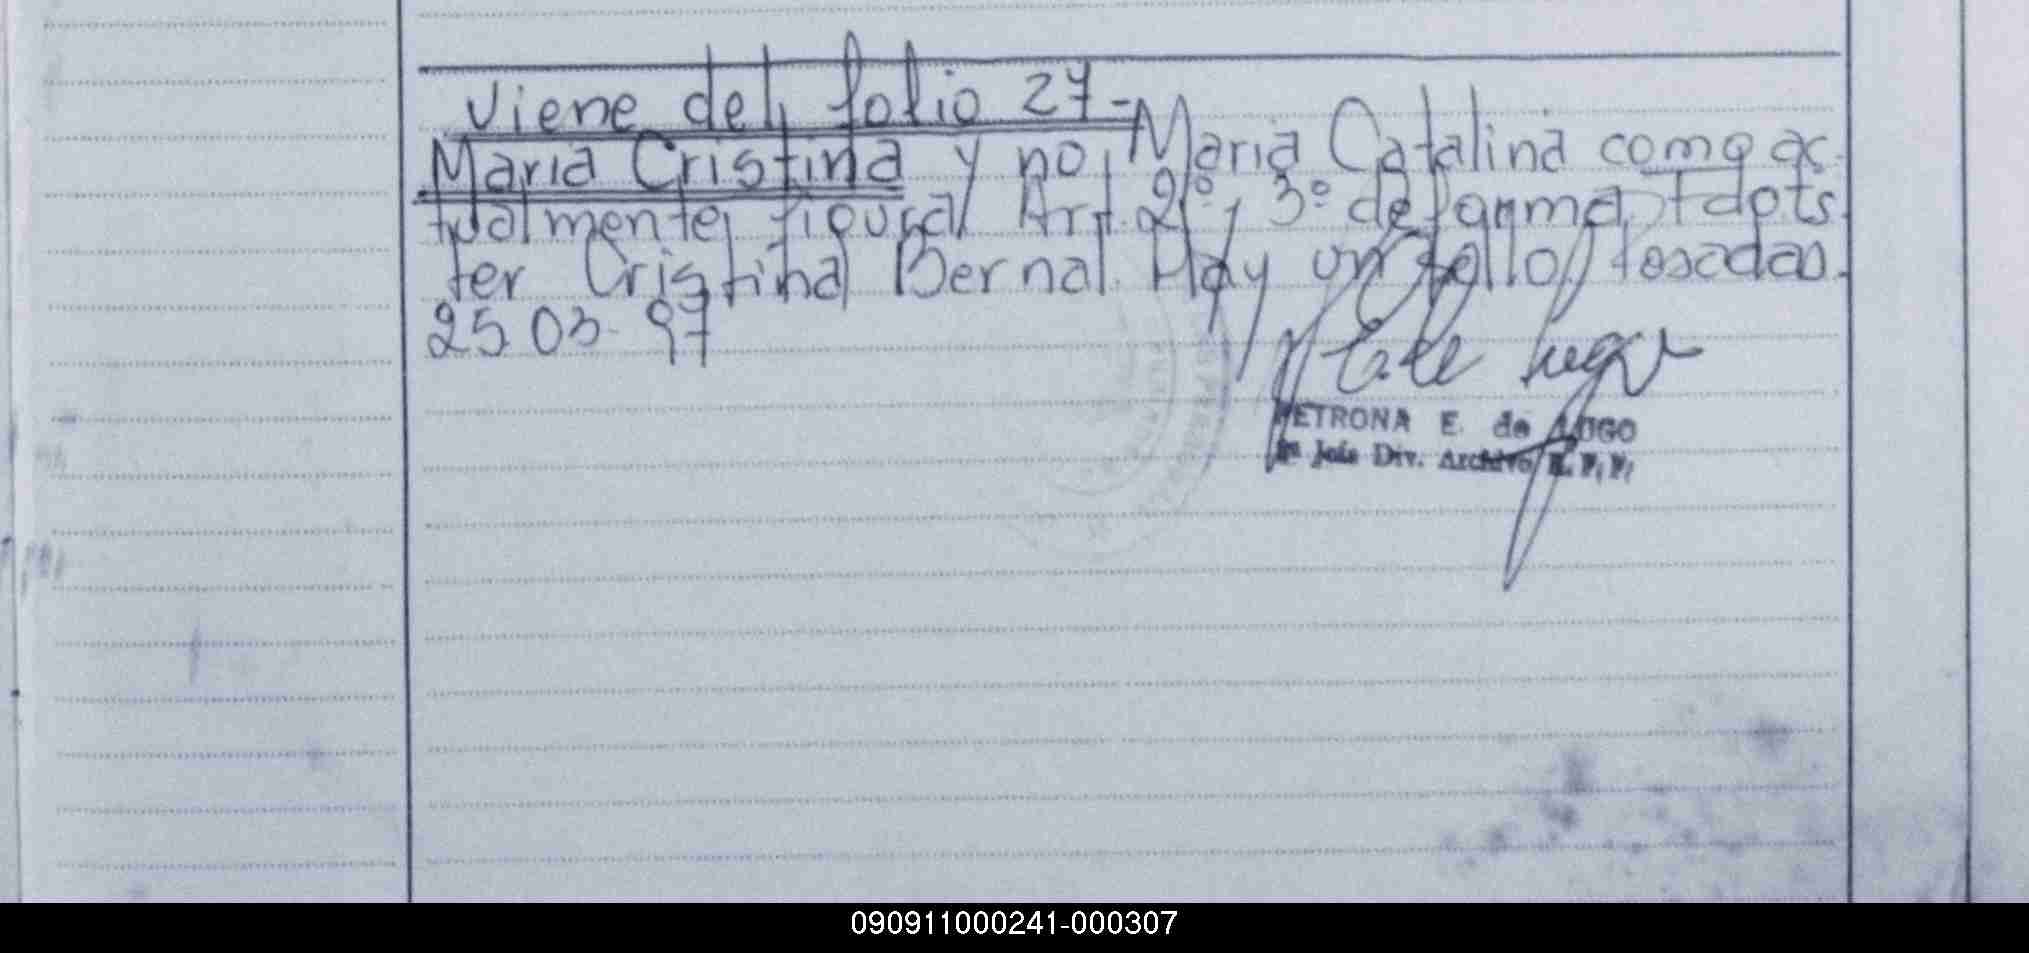 Viene del folio 27-
Maria Cristina y no Maria Catalina como ac-
tualmente figura Art. 2º y 3º de forma, Fdo ts.
ter Cristina Bernal. Hay un sello Posadas.
25 03-97
PETRONA E. de LUGO
Jefe Div. Archivo R. P. P.
090911000241-000307